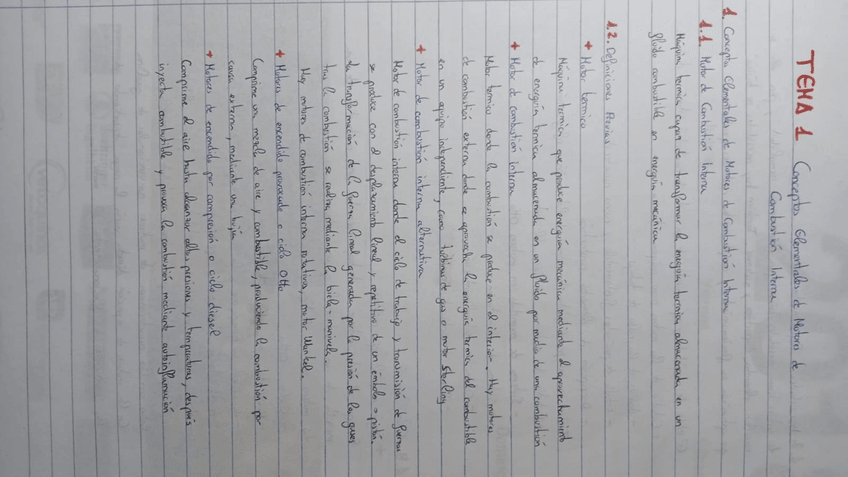 TEMA 1 Conceptos Elementales de Motores de
Combustión Interna
1. Conceptos Elementales de Motores de Combustión Interna
1.1. Motor de Combustión Interna
Máquina termica capaz de transformar la energía termica almacenada en un
fluido combustible en energía mecánica
1.2. Definiciones Previas
+ Motor termico
Máquina termica que produce energía mecánica mediante el aprovechamiento
de energía termica almacenada en un fluido por medio de una combustión
+ Motor de combustión interna
Motor termico donde la combustión se produce en el interior. Hay motores
de combustión externa donde se aprovecha la energía termica del combustible
en un equipo independiente, como turbinas de gas o motor Sterling
+ Motor de combustión interna alternativa
Motor de combustión interna donde el ciclo de trabajo y transmisión de fuerza
se produce con el desplazamiento lineal y repetitivo de un émbolo o pistón.
La transformación de la fuerza lineal generada por la presión de los gases
tras la combustión se realiza mediante la biela-manivela.
Hay motores de combustión interna rotativa, motor Wankel.
+ Motores de encendido provocado o ciclo Otto
Comprime una mezcla de aire y combustible, produciendo la combustión por
causa externa, mediante una bujía
+ Motores de encendido por compresión o ciclo diesel
Comprime el aire hasta alcanzar altas presiones y temperaturas, después
inyecta combustible y provoca la combustión mediante autoinflamación